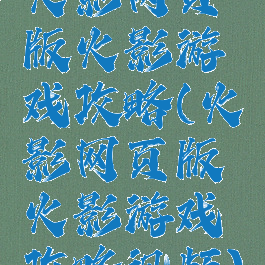 火影网页
版火影游
戏攻略(火
影网页版
火影游戏
攻略视频)